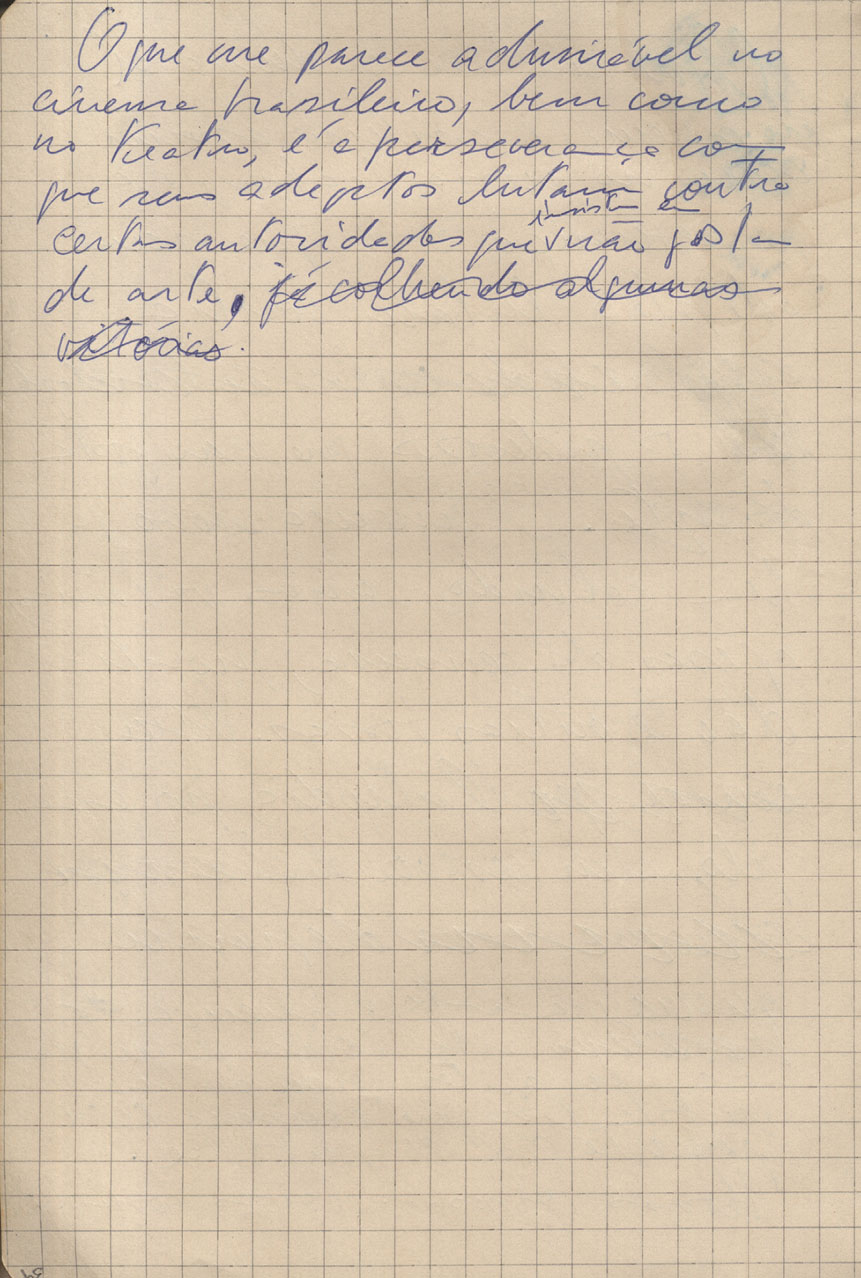 O que me parece admirável no
cinema brasileiro, bem como
no teatro, é a perseverança com
que seus adeptos lutam contra
insistem em
certas autoridades que não gostar
de arte, já colhendo algumas
vitórias.